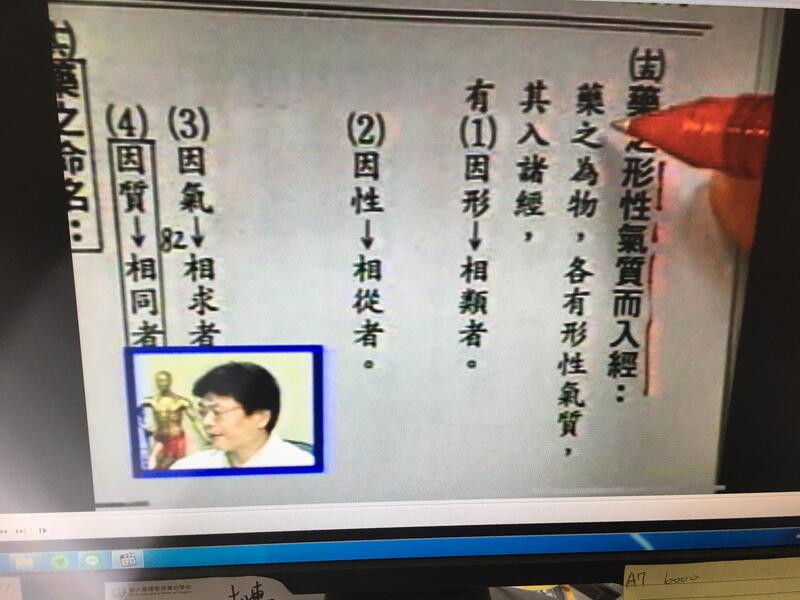 ㈩五藥之形性氣質而入經：
藥之為物，各有形性氣質，
其入諸經，
有(1)因形→相類者。
(2)因性→相從者。
(3)因氣→相求者
82
(4)因質→相同者
藥之命名：
A7 6000